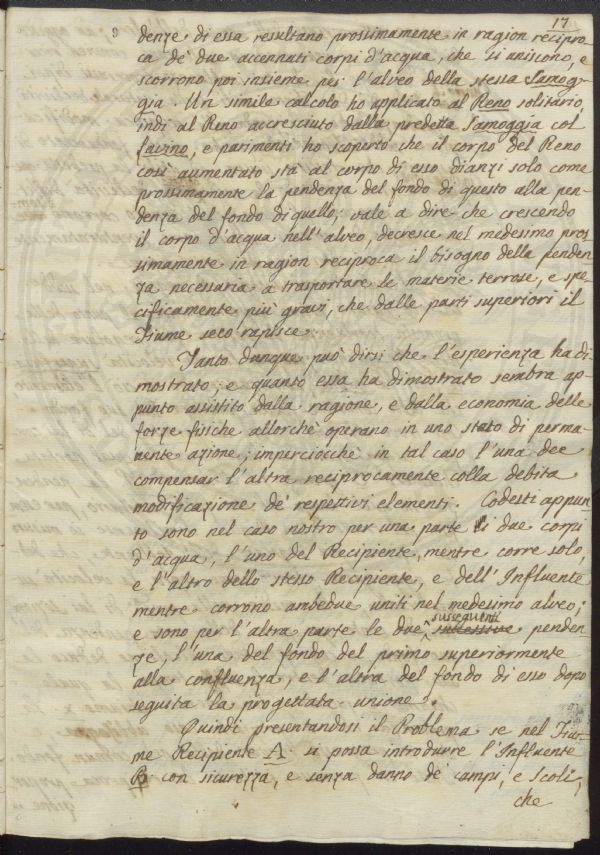 17
denze di essa resultano prossimamente in ragion recipro-
ca de' due accennati corpi d'acqua, che si uniscono, e
scorrono poi insieme per l'alveo della stessa Samog-
gia. Un simile calcolo ho applicato al Reno solitario,
indi al Reno accresciuto dalla predetta Samoggia col
Lavino, e parimenti ho scoperto che il corpo del Reno
così aumentato stà al corpo di esso dianzi solo come
prossimamente la pendenza del fondo di questo alla pen-
denza del fondo di quello; vale a dire che crescendo
il corpo d'acqua nell'alveo, decresce nel medesimo pros-
simamente in ragion reciproca il bisogno della penden-
za necessaria a trasportare le materie terrose, e spe-
cificamente più gravi, che dalle parti superiori il
Fiume seco rapisce.
Tanto dunque può dirsi che l'esperienza ha di-
mostrato; e quanto essa ha dimostrato sembra ap-
punto assistito dalla ragione, e dalla economia delle
forze fisiche allorchè operano in uno stato di perma-
nente azione; imperciocchè in tal caso l'una dee
compensar l'altra reciprocamente colla debita
modificazione de' respettivi elementi. Codesti appun-
to sono nel caso nostro per una parte li due corpi
d'acqua, l'uno del Recipiente, mentre corre solo,
e l'altro dello stesso Recipiente, e dell'Influente
mentre corrono ambedue uniti nel medesimo alveo;
susseguenti
e sono per l'altra parte le due successive penden-
ze, l'una del fondo del primo superiormente
alla confluenza, e l'altra del fondo di esso dopo
seguita la progettata unione.
Quindi presentandosi il Problema se nel Fiu-
me Recipiente A. si possa introdurre l'Influente
B. con sicurezza, e senza danno de' campi, e Scoli,
che